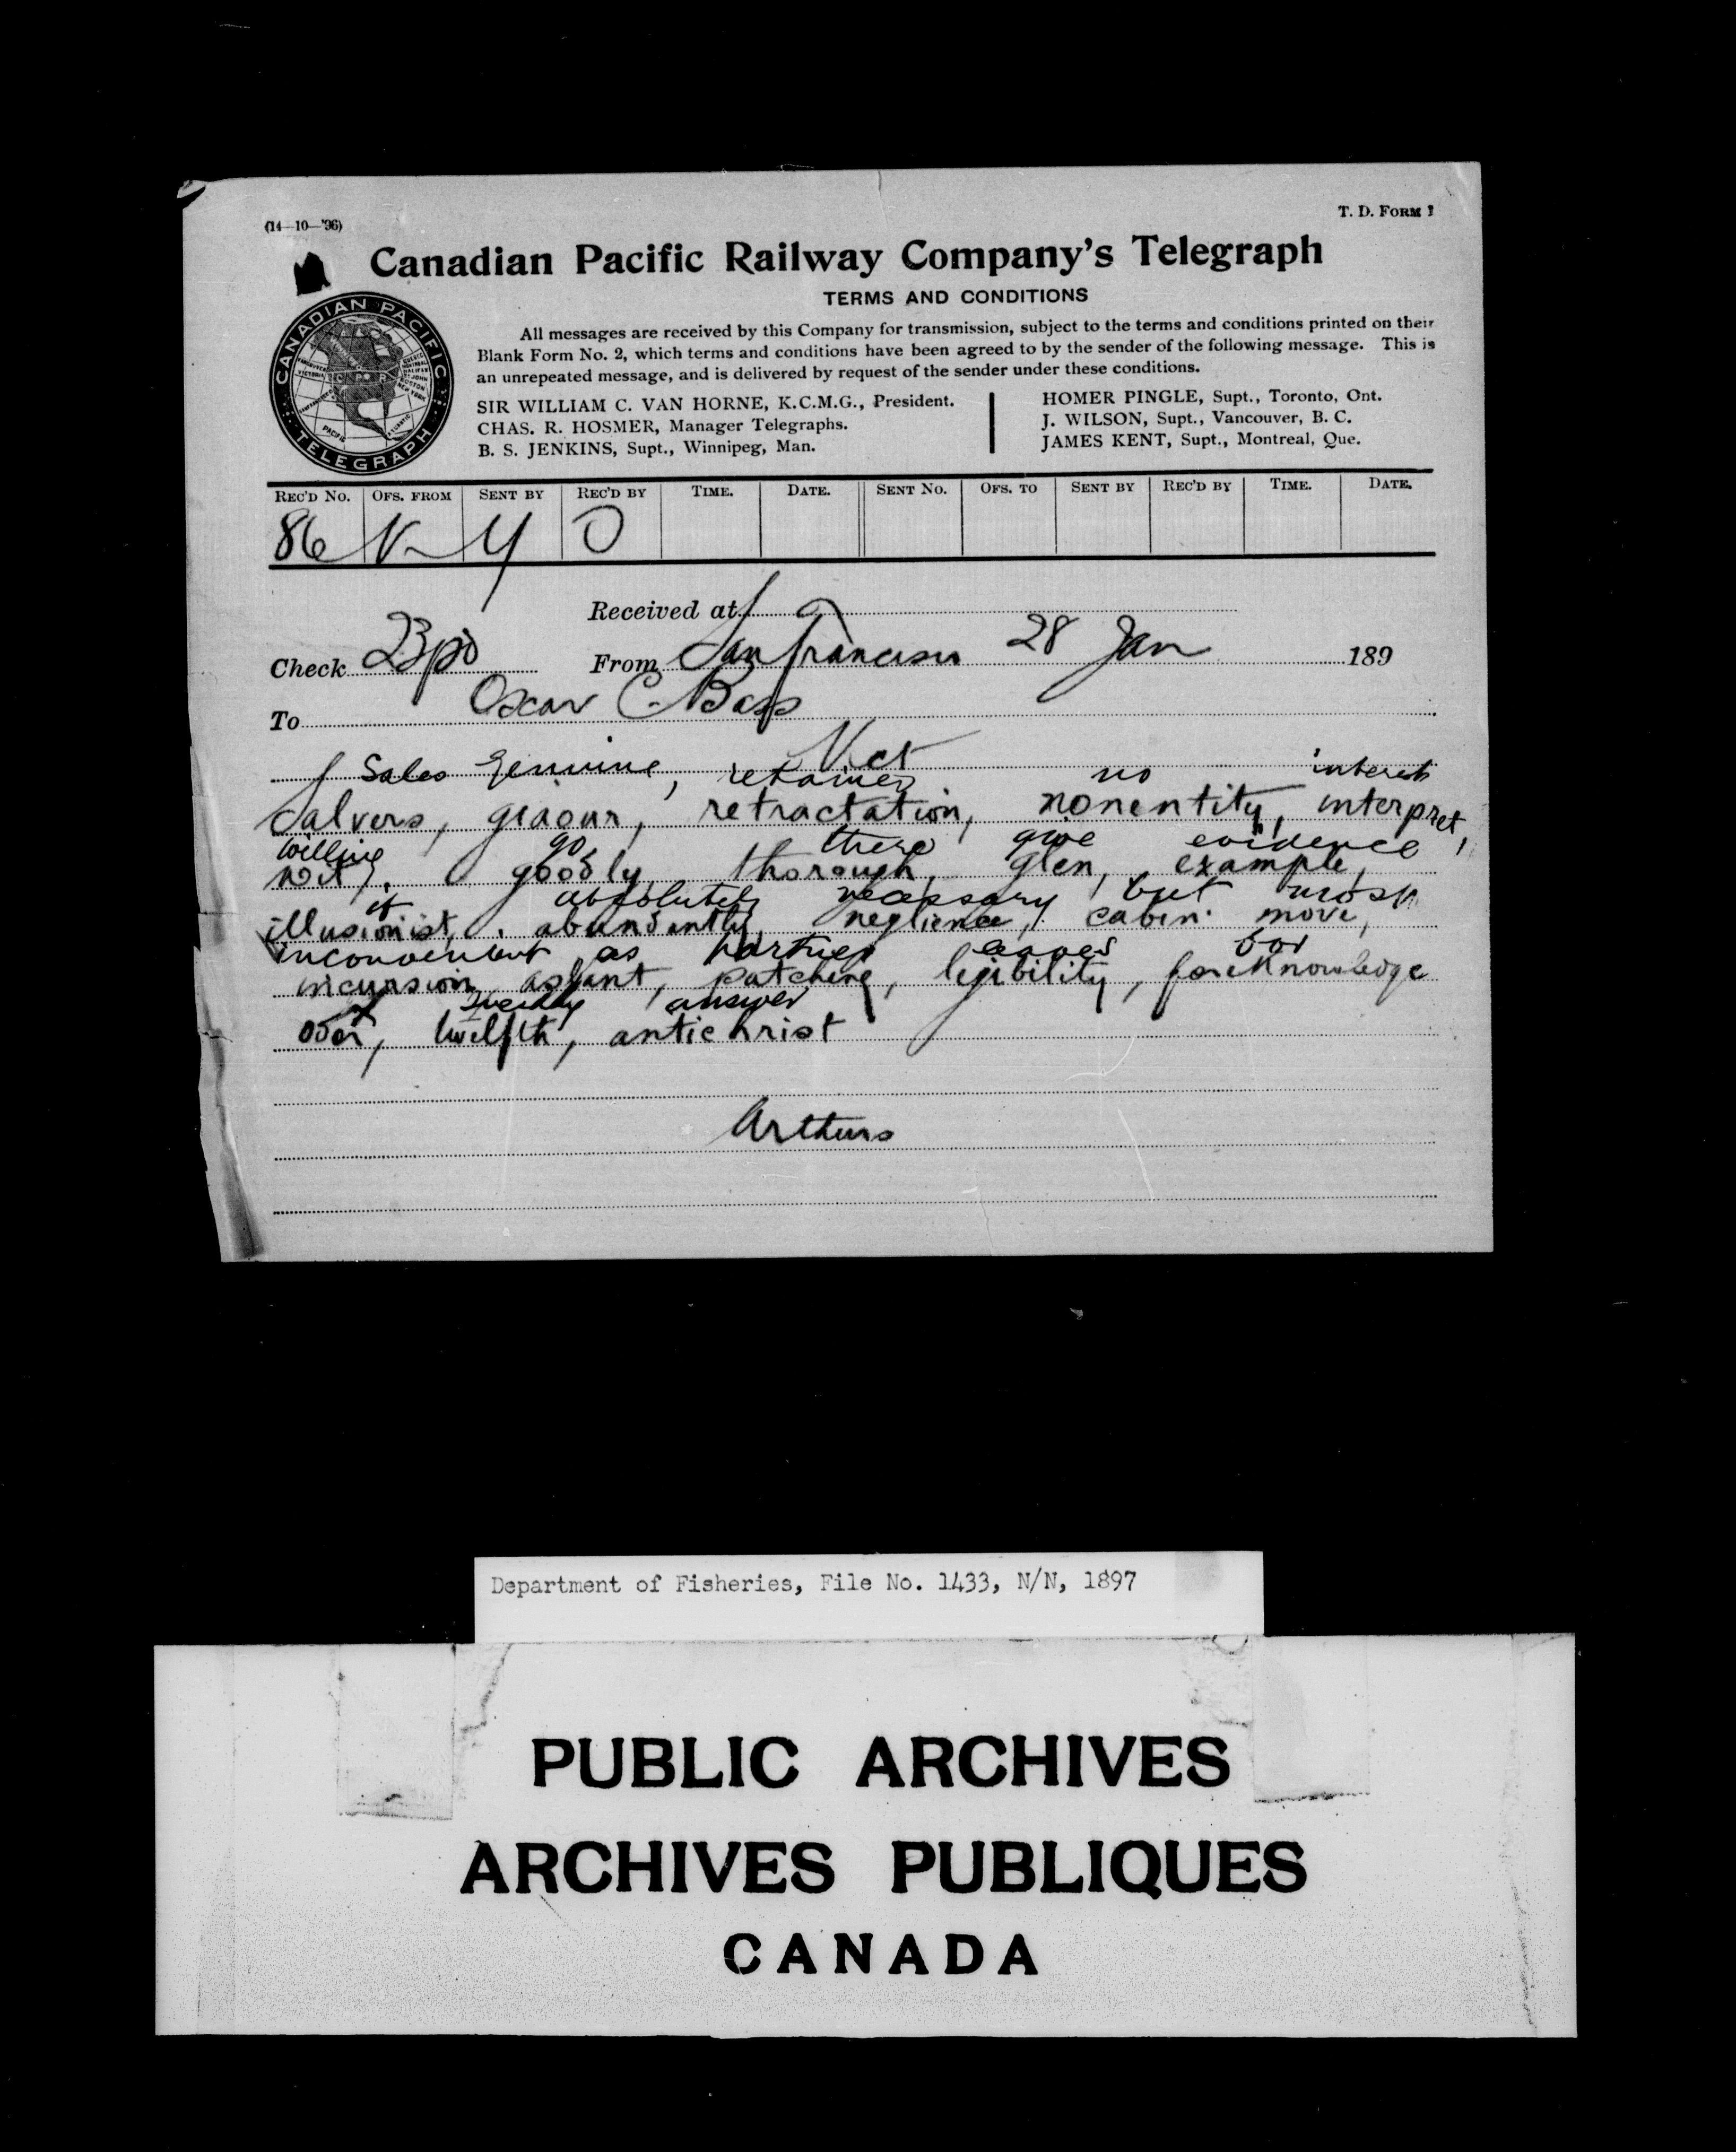 (14—10—'96)
T. D. FORM 1
Canadian Pacific Railway Company's Telegraph
TERMS AND CONDITIONS
All messages are received by this Company for transmission, subject to the terms and conditions printed on their
Blank Form No. 2, which terms and conditions have been agreed to by the sender of the following message. This is
an unrepeated message, and is delivered by request of the sender under these conditions.
CANADIAN PACIFIC
TELEGRAPH
SIR WILLIAM C. VAN HORNE, K.C.M.G., President.
CHAS. R. HOSMER, Manager Telegraphs.
B. S. JENKINS, Supt., Winnipeg, Man.
HOMER PINGLE, Supt., Toronto, Ont.
J. WILSON, Supt., Vancouver, B. C.
JAMES KENT, Supt., Montreal, Que.
REC'D NO. OFS. FROM SENT BY REC'D BY TIME. DATE. SENT NO. OFS. TO SENT BY REC'D BY TIME. DATE.
86 V Y O
Received at
Check 23 pd From San Francisco 28 Jan 189
To Oscar C. Bass
Vict
Sales genuine, retained no interest
Salvers, giaour, retractation, nonentity, interpret,
willing go there give evidence
wit, goodly, thorough, glen, example,
if absolutely necessary but most
illusionist, abundantly, neglience, cabin move,
inconvenient as partner leaves for
incursion, aslant, patching, legibility, foreknowledge
answer
twelfth, antichrist
Arthurs
Department of Fisheries, File No. 1433, N/N, 1897
PUBLIC ARCHIVES
ARCHIVES PUBLIQUES
CANADA